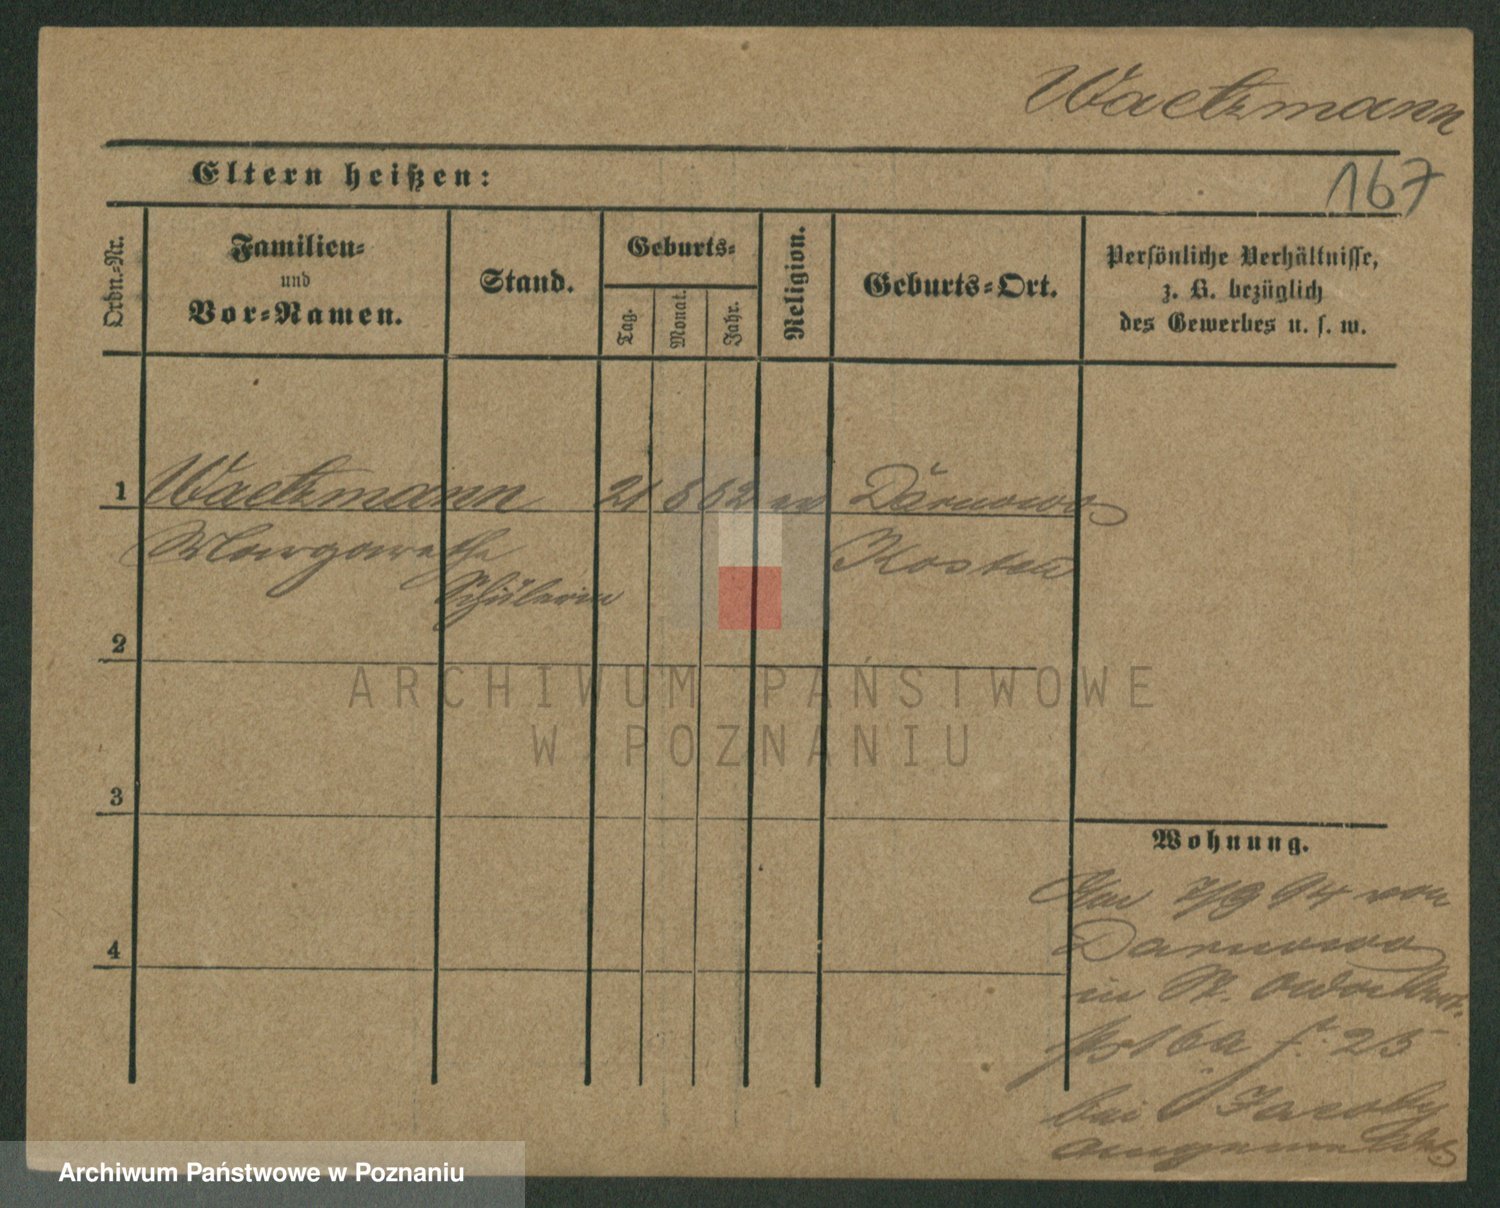 Waetzmann
Eltern heißen:
167
Ordn.-Nr.
Familien-
und
Vor-Namen.
Stand.
Geburts-
Tag.
Monat.
Jahr.
Religion.
Geburts-Ort.
Persönliche Verhältnisse,
z. B. bezüglich
des Gewerbes u. s. w.
1 Waetzmann 21 8 62 ev Darnowo
Margarethe Kosten
Schülerin
2
3
4
Wohnung.
7/9 94 von
Darnowo
in
f. 25
bei Jacoby
angemeldet
ARCHIWUM PAŃSTWOWE
W POZNANIU
Archiwum Państwowe w Poznaniu